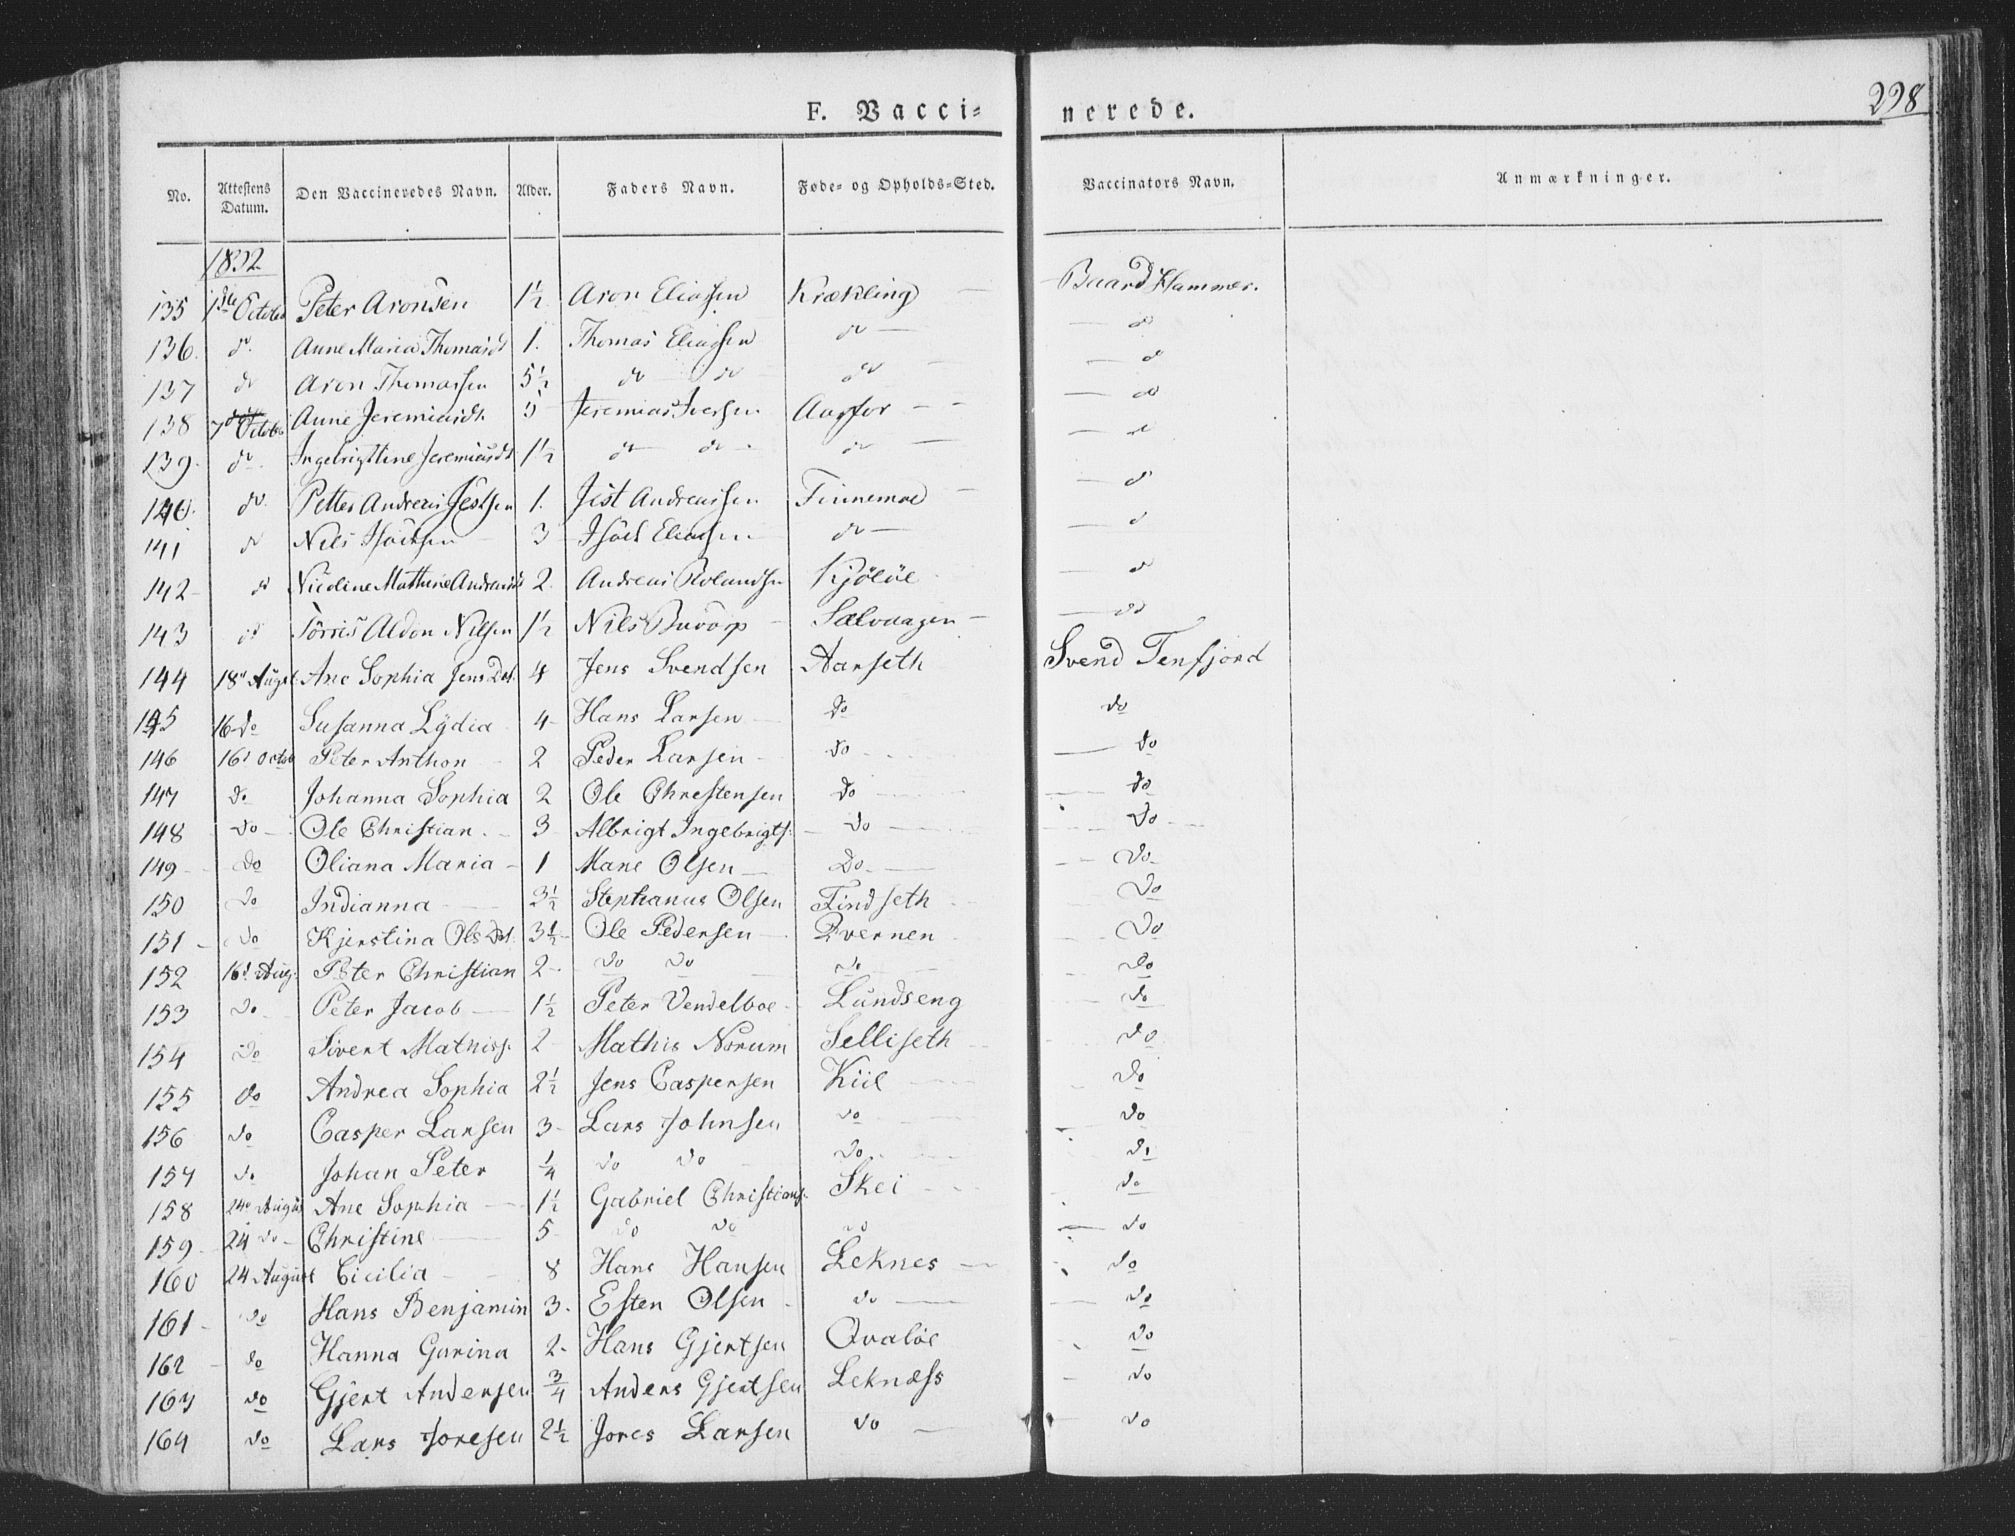 298
F. Vacci- nerede.
No. Attestens Datum. Den Vaccineredes Navn. Alder. Faders Navn. Føde- og Opholds-Sted. Vaccinators Navn. Anmærkninger.
1832
135 1ste Octobr Peter Aronsen 1½ Aron Eliassen Krækling Baard Hammer.
136. do. Anne Maria Thomasdt 1. Thomas Eliassen do do
137 do Aron Thomassen 5½ do do do do
138 7de Octobr Anne Jeremiasdt. 5 Jeremias Iversen Aarfor do
139. do. Ingebrigtine Jeremiasdt 1½ do do do do
140. do. Petter Andreas Jestsen 1. Jest Andreassen Finnemoe do
141 do Nils Isacksen 3 Isach Eliassen do do
142 do Nicoline Mathine Andreasdt 2. Andreas Rolandsen Kjöeöe do
143 do Törris Aldon Nilsen 1½ Nils Buvarp Salvaagen do
144 18d August Ane Sophia Jens Dat. 4 Jens Svendsen Aarseth Svend Tenfjord
145 16 do Susanna Lydia 4 Hans Larsen do do
146 16d Octob Peter Anthon 2 Peder Larsen do do
147 do Johanna Sophia 2 Ole Christensen do do
148 do Ole Christian 3 Albrigt Ingebrigts. do do
149 do Oliana Maria 1 Mane Olsen Do do
150 do Indianna 3½ Stephanus Olsen Findseth do
151 do Kjerstina Ols Dat. 3½ Ole Pedersen Qvernen do
152 16d Aug. Peter Christian 2 do do do do
153 do Peter Jacob 1½ Peter Vendelboe Lundseng do
154 do Sivert Mathiss. 2 Mathis Norum Selliseth do
155 do Andrea Sophia 2½ Jens Caspersen Kiil do
156 do Casper Larsen 3 Lars Johnsen do do
157 do Johan Peter ¼ do do do do
158 24d August Ane Sophia 1½ Gabriel Christians. Skei do
159 24 do Christine 5 do do do do
160 24 August Cicilia 8 Hans Hansen Leknes do
161 do Hans Benjamin 3. Esten Olsen do do
162 do Hanna Gurina 2 Hans Gjertsen Qvaløe do
163 do Gjert Andersen ¾ Anders Gjertsen Leknæss do
164 do Lars Joresen 2½ Jores Larsen do do